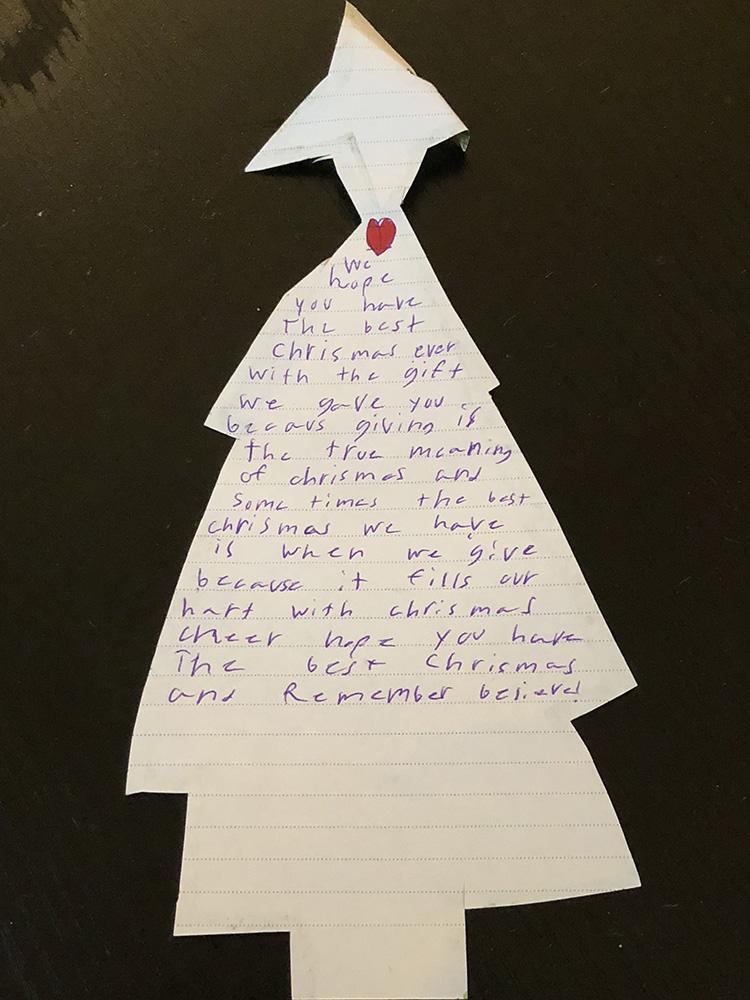 We
hope
you have
The best
chrismas ever
with the gift
we gave you
becaus giving is
the true meaning
of chrismas and
some times the best
chrismas we have
is when we give
because it fills our
hart with chrismas
cheer hope you have
The best Chrismas
and Remember believe!